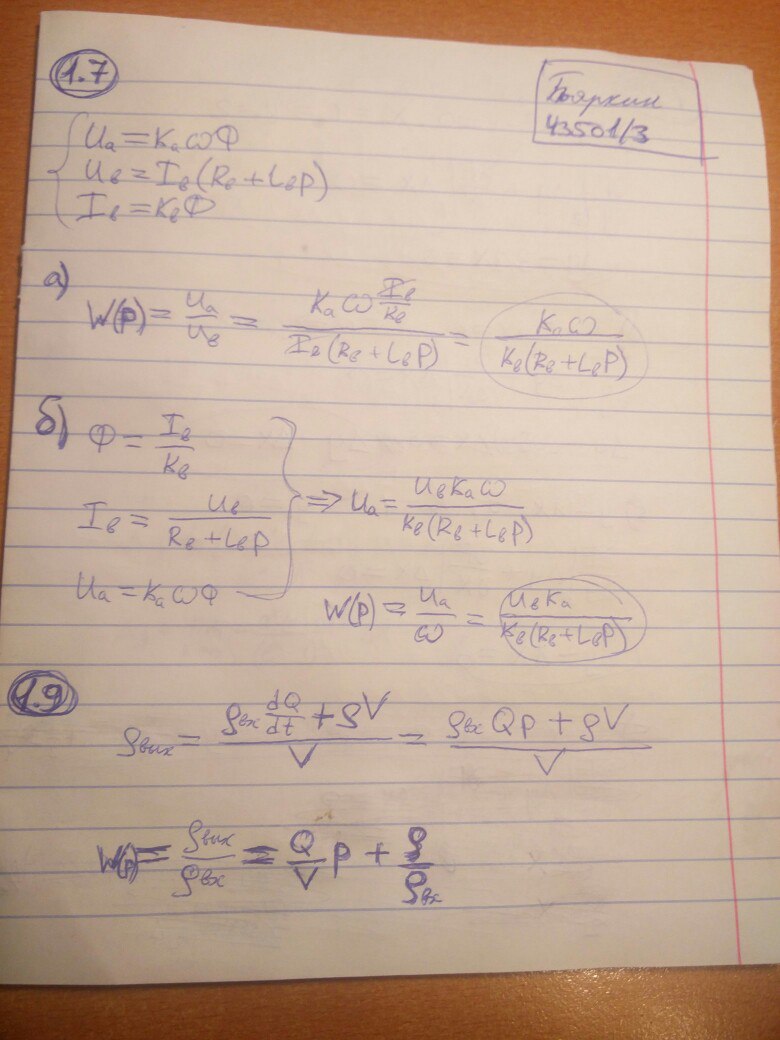 1.7
Бояркин
43501/3
Uа = Kа ω Ф
Uв = Iв (Rв + Lв p)
Iв = Kв Ф
а)
W(p) = Uа/Uв = (Kа ω Iв/Kв)/(Iв (Rв + Lв p)) = Kа ω/(Kв (Rв + Lв p))
б)
Ф = Iв/Kв
Iв = Uв/(Rв + Lв p)
Uа = Kа ω Ф
=> Uа = Uв Kа ω/(Kв (Rв + Lв p))
W(p) = Uа/ω = Uв Kа/(Kв (Rв + Lв p))
1.9
ρвых = (ρвх dQ/dt + ρV)/V = (ρвх Qp + ρV)/V
W(p) = ρвых/ρвх = Q/V p + ρ/ρвх